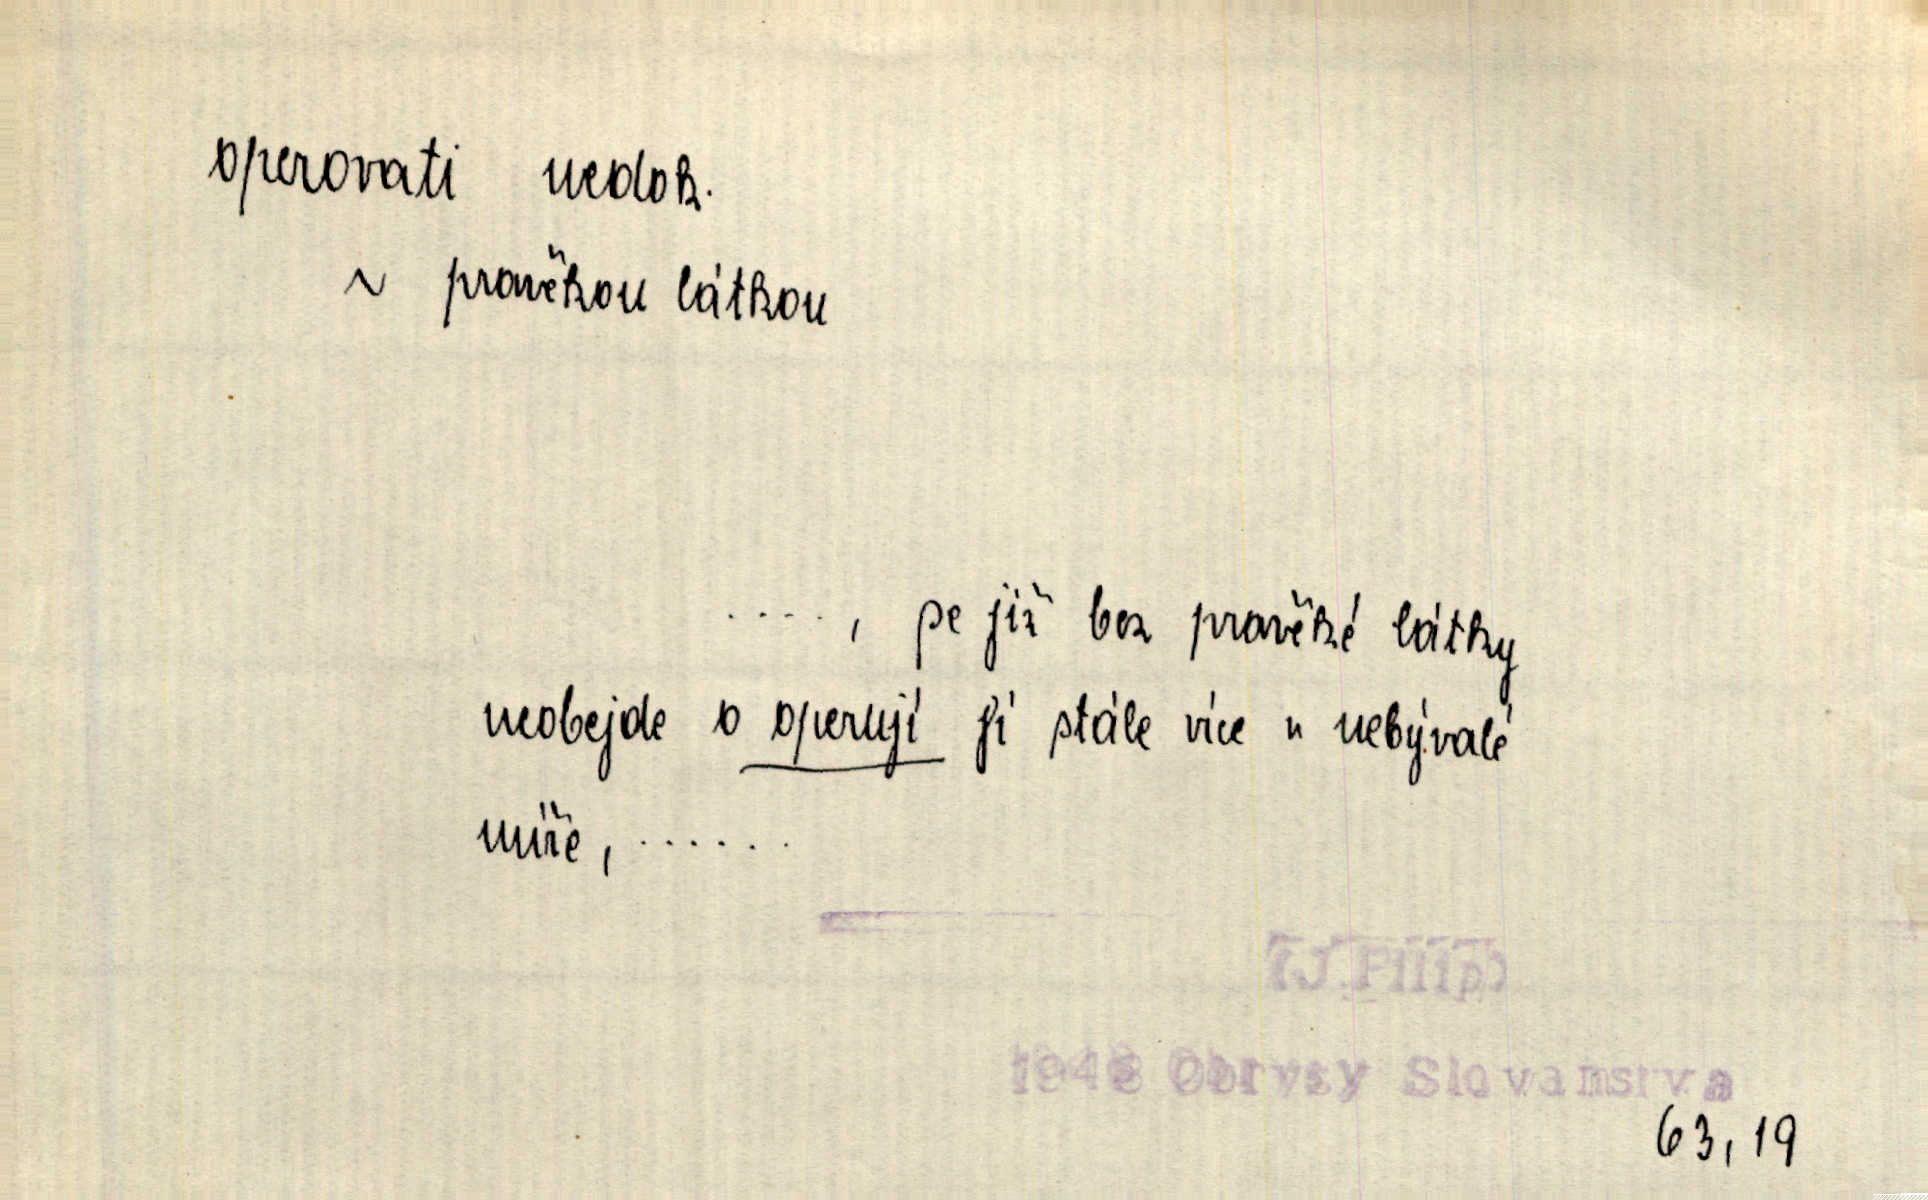 operovati nedok.
~ pravěkou látkou
....., se již bez pravěké látky
neobejde a operují jí stále více v nebývalé
míře, ......
(J. Filip)
1948 Obrysy Slovanstva
63, 19